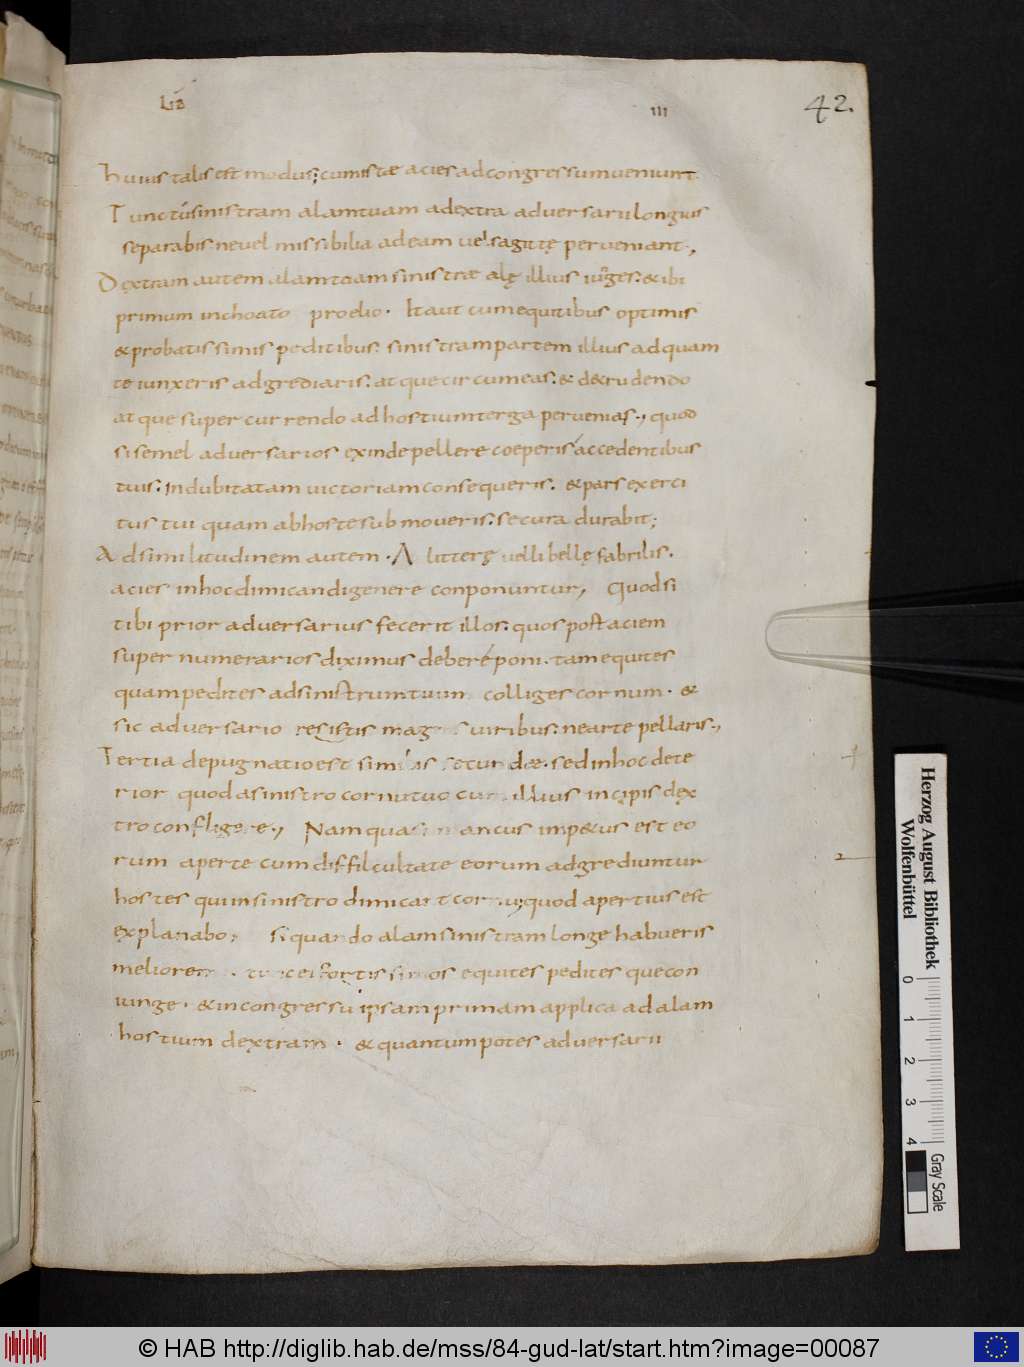 Lib III 42.
huius talis est modus; cum istae acies ad congressum veniunt
Tunc tu sinistram alam tuam a dextra adversarii longius
separabis ne vel missibilia ad eam vel sagittę perveniant,
Dextram autem alam tuam sinistrae alę illius iunges. & ibi
primum inchoato proelio. Ita ut cum equitibus optimis
& probatissimis peditibus. sinistram partem illius ad quam
te iunxeris adgrediaris. atque circumeas. & detrudendo
atque supercurrendo ad hostium terga pervenias., quod
si semel adversarios exinde pellere coeperis accedentibus
tuis. indubitatam victoriam consequeris. & pars exerci
tus tui quam ab hoste submoveris. secura durabit;
Ad similitudinem autem. Λ litterę vel libellę fabrilis.
acies in hoc dimicandi genere conponuntur, Quod si
tibi prior adversarius fecerit illos. quos post aciem
super numerarios diximus debere poni. tam equites
quam pedites ad sinistrum tuum colliges cornum. &
sic adversario resistis mag viribus. ne arte pellaris.,
Tertia depugnatio est sed in hoc dete
rior quod a sinistro cornu tuo cum illius incipis dex
tro confligere., Nam quasi mancus impetus est eo
rum aperte cum diffilcultate eorum adgrediuntur
hostes qui in sinistro dimicant cornu; quod apertius est
explanabo; si quando alam sinistram longe habueris
meliorem. tunc ei fortissimos equites peditesque con
iunge. & in congressu ipsam primam applica ad alam
hostium dextram. & quantum potes adversarii
Herzog August Bibliothek
Wolfenbüttel
0 1 2 3 4
Gray Scale
© HAB http://diglib.hab.de/mss/84-gud-lat/start.htm?image=00087